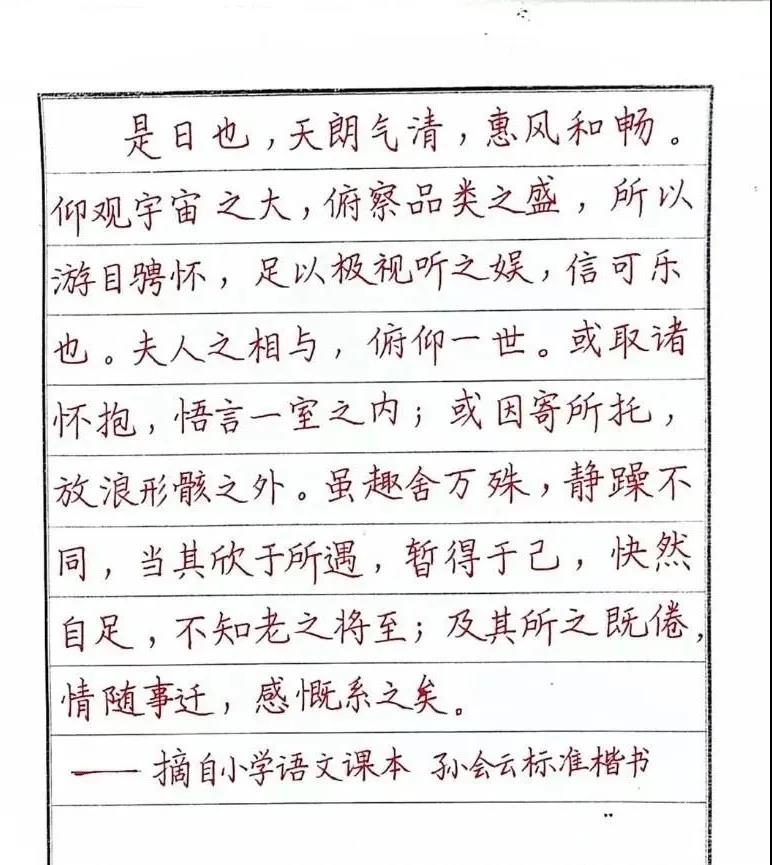 是日也，天朗气清，惠风和畅。
仰观宇宙之大，俯察品类之盛，所以
游目骋怀，足以极视听之娱，信可乐
也。夫人之相与，俯仰一世。或取诸
怀抱，悟言一室之内；或因寄所托，
放浪形骸之外。虽趣舍万殊，静躁不
同，当其欣于所遇，暂得于己，快然
自足，不知老之将至；及其所之既倦，
情随事迁，感慨系之矣。
——摘自小学语文课本 孙会云标准楷书